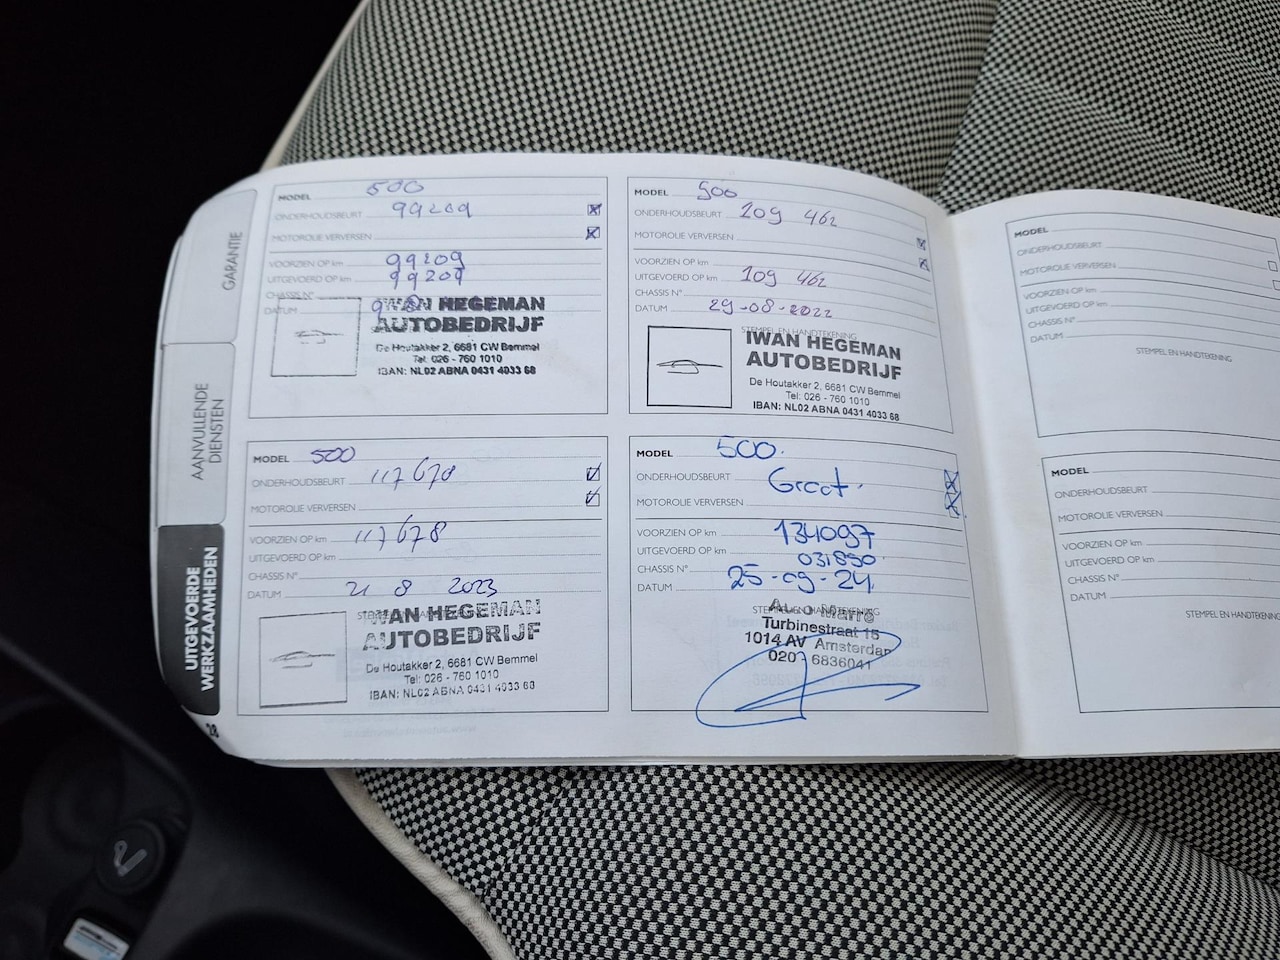 GARANTIE
AANVULLENDE
DIENSTEN
UITGEVOERDE
WERKZAAMHEDEN
28
MODEL 500
ONDERHOUDSBEURT 99209
MOTOROLIE VERVERSEN
VOORZIEN OP km 99209
UITGEVOERD OP km 99209
CHASSIS N°
DATUM
IWAN HEGEMAN
AUTOBEDRIJF
De Houtakker 2, 6681 CW Bemmel
Tel: 026 - 760 1010
IBAN: NL02 ABNA 0431 4033 68
MODEL 500
ONDERHOUDSBEURT 109 462
MOTOROLIE VERVERSEN
VOORZIEN OP km
UITGEVOERD OP km 109 462
CHASSIS N°
DATUM 29-08-2022
STEMPEL EN HANDTEKENING
IWAN HEGEMAN
AUTOBEDRIJF
De Houtakker 2, 6681 CW Bemmel
Tel: 026 - 760 1010
IBAN: NL02 ABNA 0431 4033 68
MODEL 500
ONDERHOUDSBEURT 117678
MOTOROLIE VERVERSEN
VOORZIEN OP km 117678
UITGEVOERD OP km
CHASSIS N°
DATUM 21 8 2023
IWAN HEGEMAN
AUTOBEDRIJF
De Houtakker 2, 6681 CW Bemmel
Tel: 026 - 760 1010
IBAN: NL02 ABNA 0431 4033 68
MODEL 500.
ONDERHOUDSBEURT Groot.
MOTOROLIE VERVERSEN
VOORZIEN OP km 134097
UITGEVOERD OP km
CHASSIS N° 031850
DATUM 25-09-24
STEMPEL EN HANDTEKENING
Marré
Turbinestraat 15
1014 AV Amsterdam
020 6836041
MODEL
ONDERHOUDSBEURT
MOTOROLIE VERVERSEN
VOORZIEN OP km
UITGEVOERD OP km
CHASSIS N°
DATUM
STEMPEL EN HANDTEKENING
MODEL
ONDERHOUDSBEURT
MOTOROLIE VERVERSEN
VOORZIEN OP km
UITGEVOERD OP km
CHASSIS N°
DATUM
STEMPEL EN HANDTEKENING